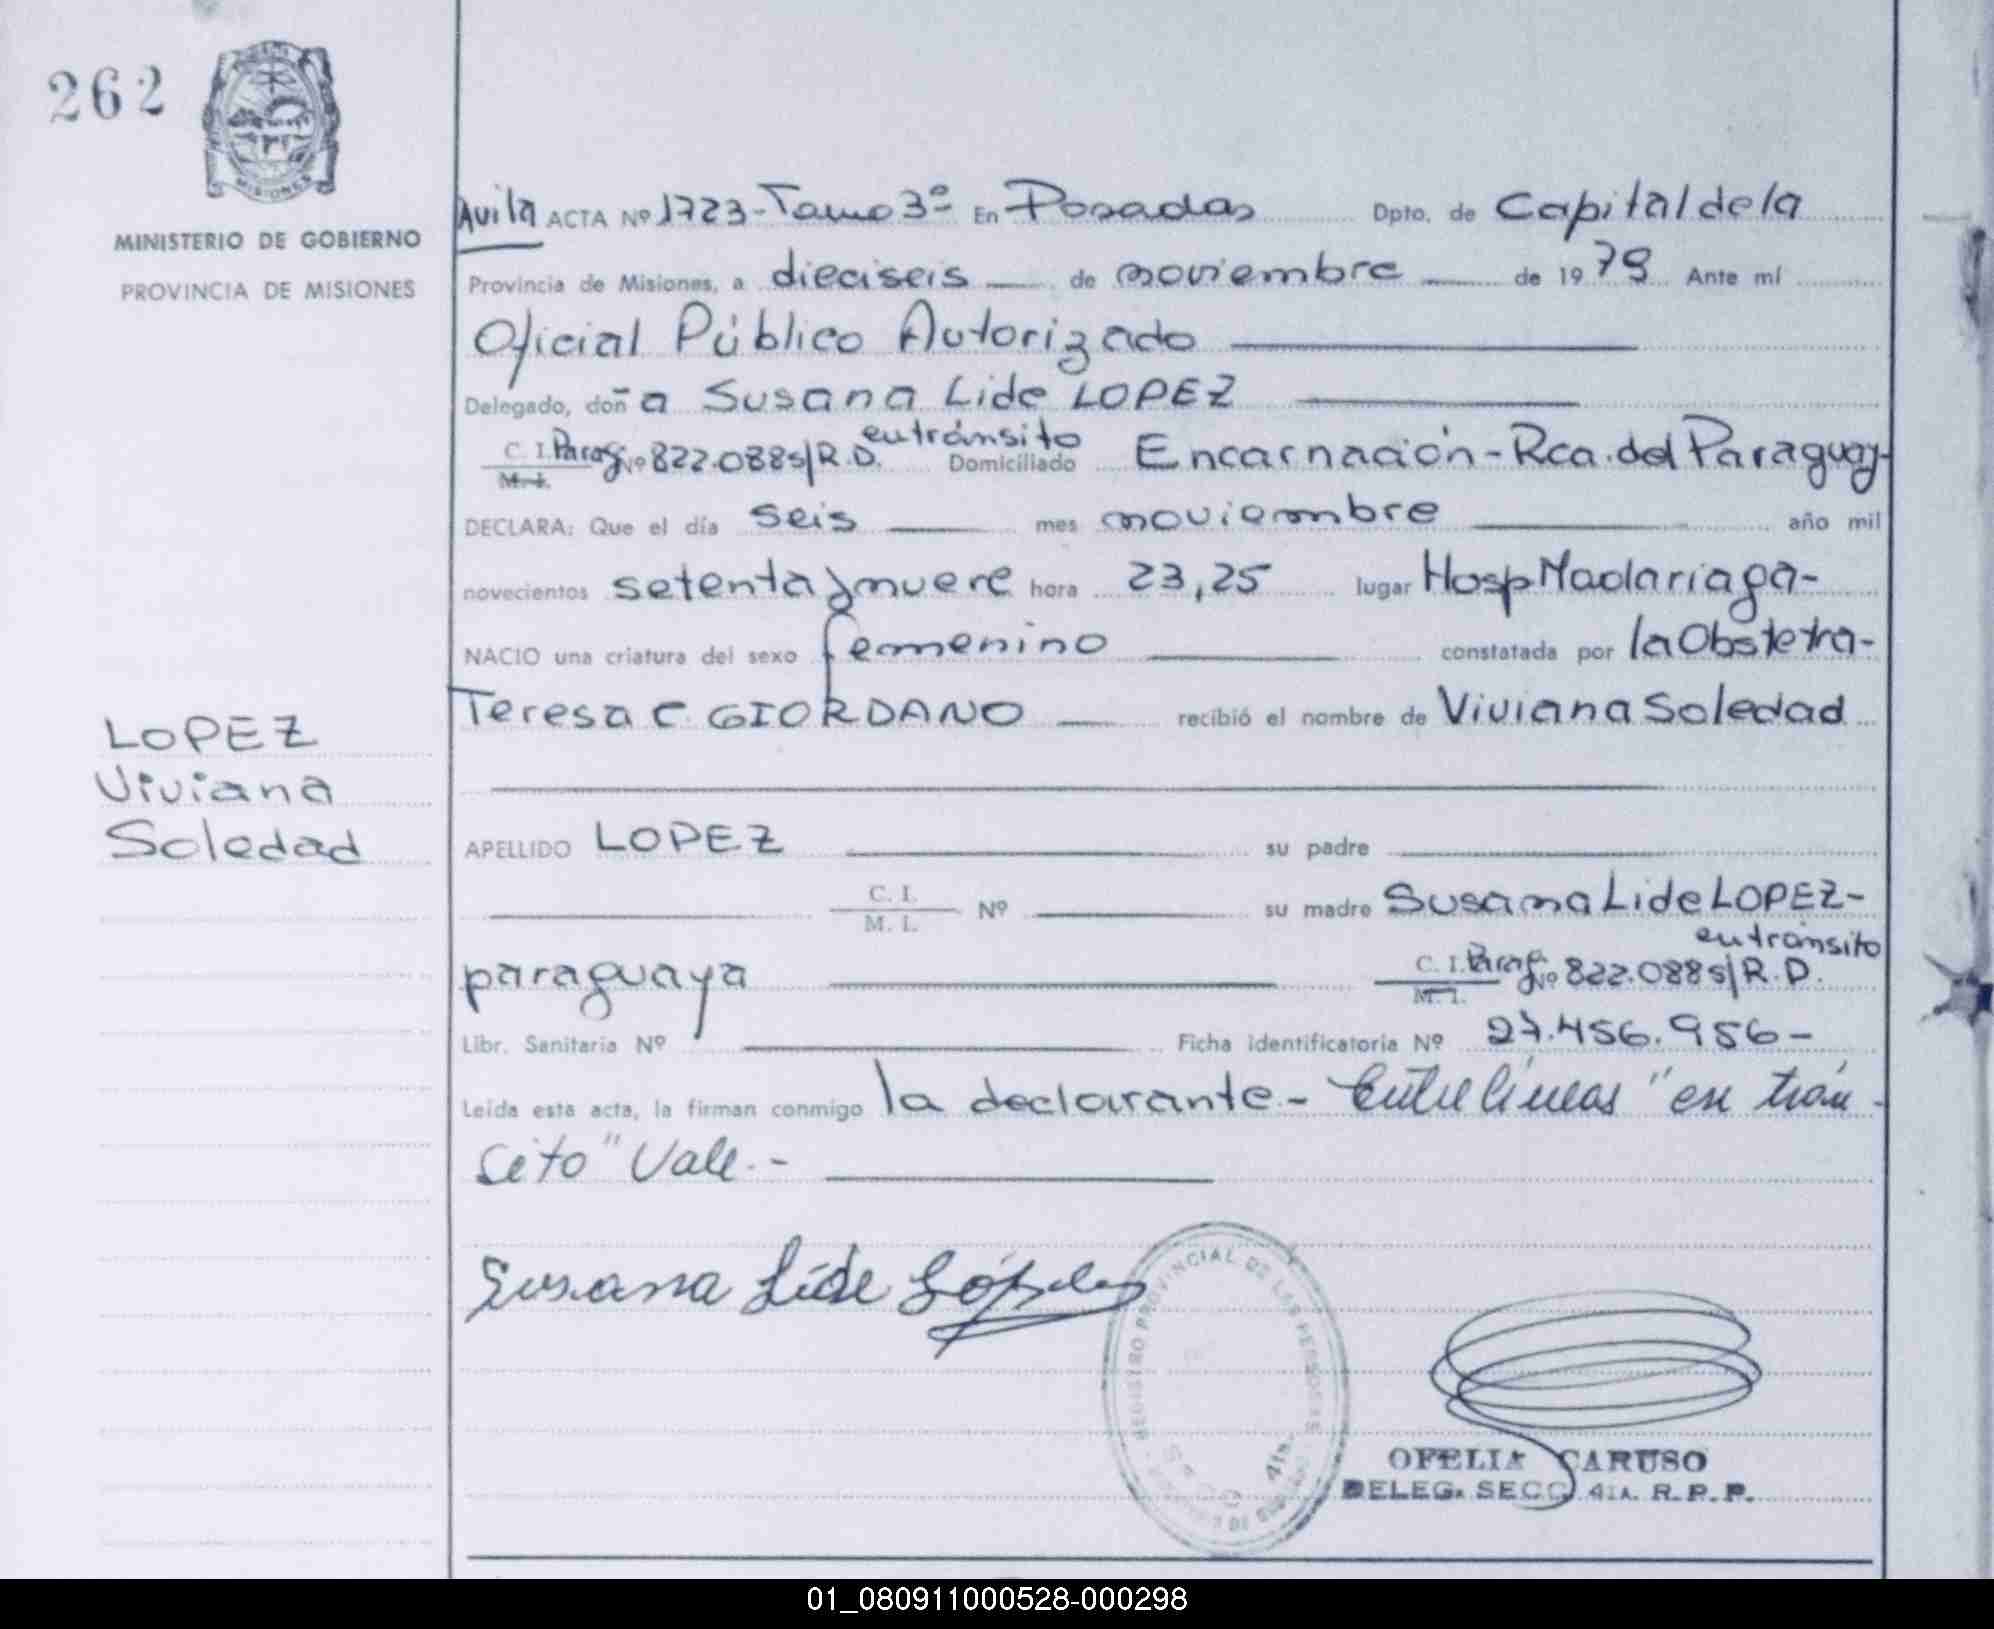 262
MISIONES
MINISTERIO DE GOBIERNO
PROVINCIA DE MISIONES
LOPEZ
Viviana
Soledad
Avila ACTA Nº 1723-Tomo 3º En Posadas Dpto. de Capital de la
Provincia de Misiones, a dieciseis de noviembre de 1979 Ante mí
Oficial Público Autorizado
Delegado, doña Susana Lide LOPEZ
en tránsito
C. I. Parag. Nº 822.088 s/R.D. Domiciliado Encarnación-Rca. del Paraguay-
M. I.
DECLARA: Que el día seis mes noviembre año mil
novecientos setenta y nueve hora 23,25 lugar Hosp Madariaga-
NACIO una criatura del sexo femenino constatada por la Obstetra-
Teresa C. GIORDANO recibió el nombre de Viviana Soledad
APELLIDO LOPEZ su padre
C. I.
M. I. Nº su madre Susana Lide LOPEZ-
en tránsito
paraguaya C. I. Parag. Nº 822.088 s/R.D.
M. I.
Libr. Sanitaria Nº Ficha Identificatoria Nº 27.456.956-
Leída esta acta, la firman conmigo la declarante.- Entre líneas "en trán-
sito" Vale.-
Susana Lide López
REGISTRO PROVINCIAL DE LAS PERSONAS
4ta.
OFELIA CARUSO
DELEG. SECC. 4TA. R.P.P.
01_080911000528-000298